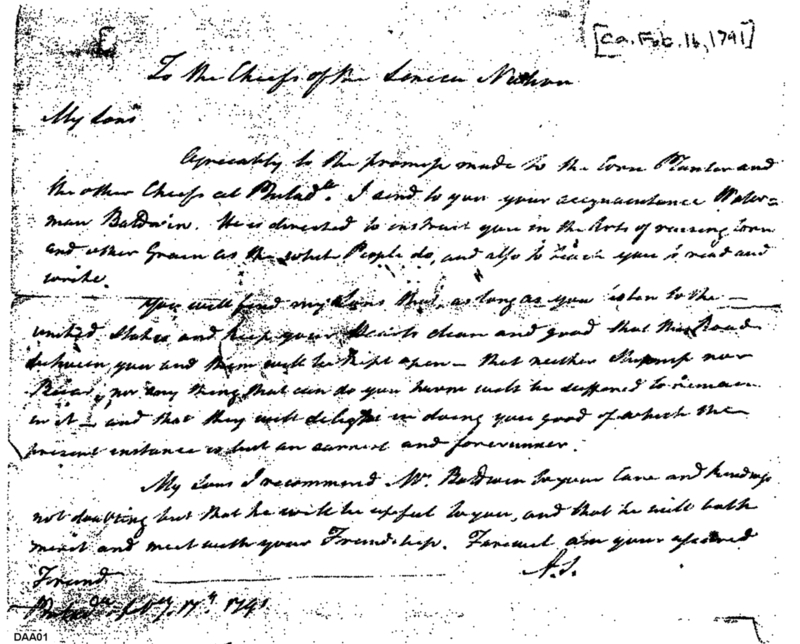 [ca. Feb. 16, 1791]
To the Chiefs of the Seneca Nation
My Sons
Agreeably to the promise made to the Corn Planter and
the other Chiefs at Philad.ᵃ I send to you your acquaintance Water=
man Baldwin. He is directed to instruct you in the Arts of raising Corn
and other Grain as the white People do, and also to teach you to read and
write.
You will find my Sons that, as long as you listen to the
United States and keep your Hearts clean and good that the Road
between you and them will be kept open – that neither
nor any thing that can do you harm will be suffered to remain
in it – and that they will delight in doing you good of which the
present instance is but an earnest and forerunner.
My Sons I recommend Mr. Baldwin to your Care and kindness
not doubting but that he will be useful to you, and that he will both
merit and meet with your Friendship. Farewell am your assured
Friend
A.S.
17ᵗʰ 1791
DAA01